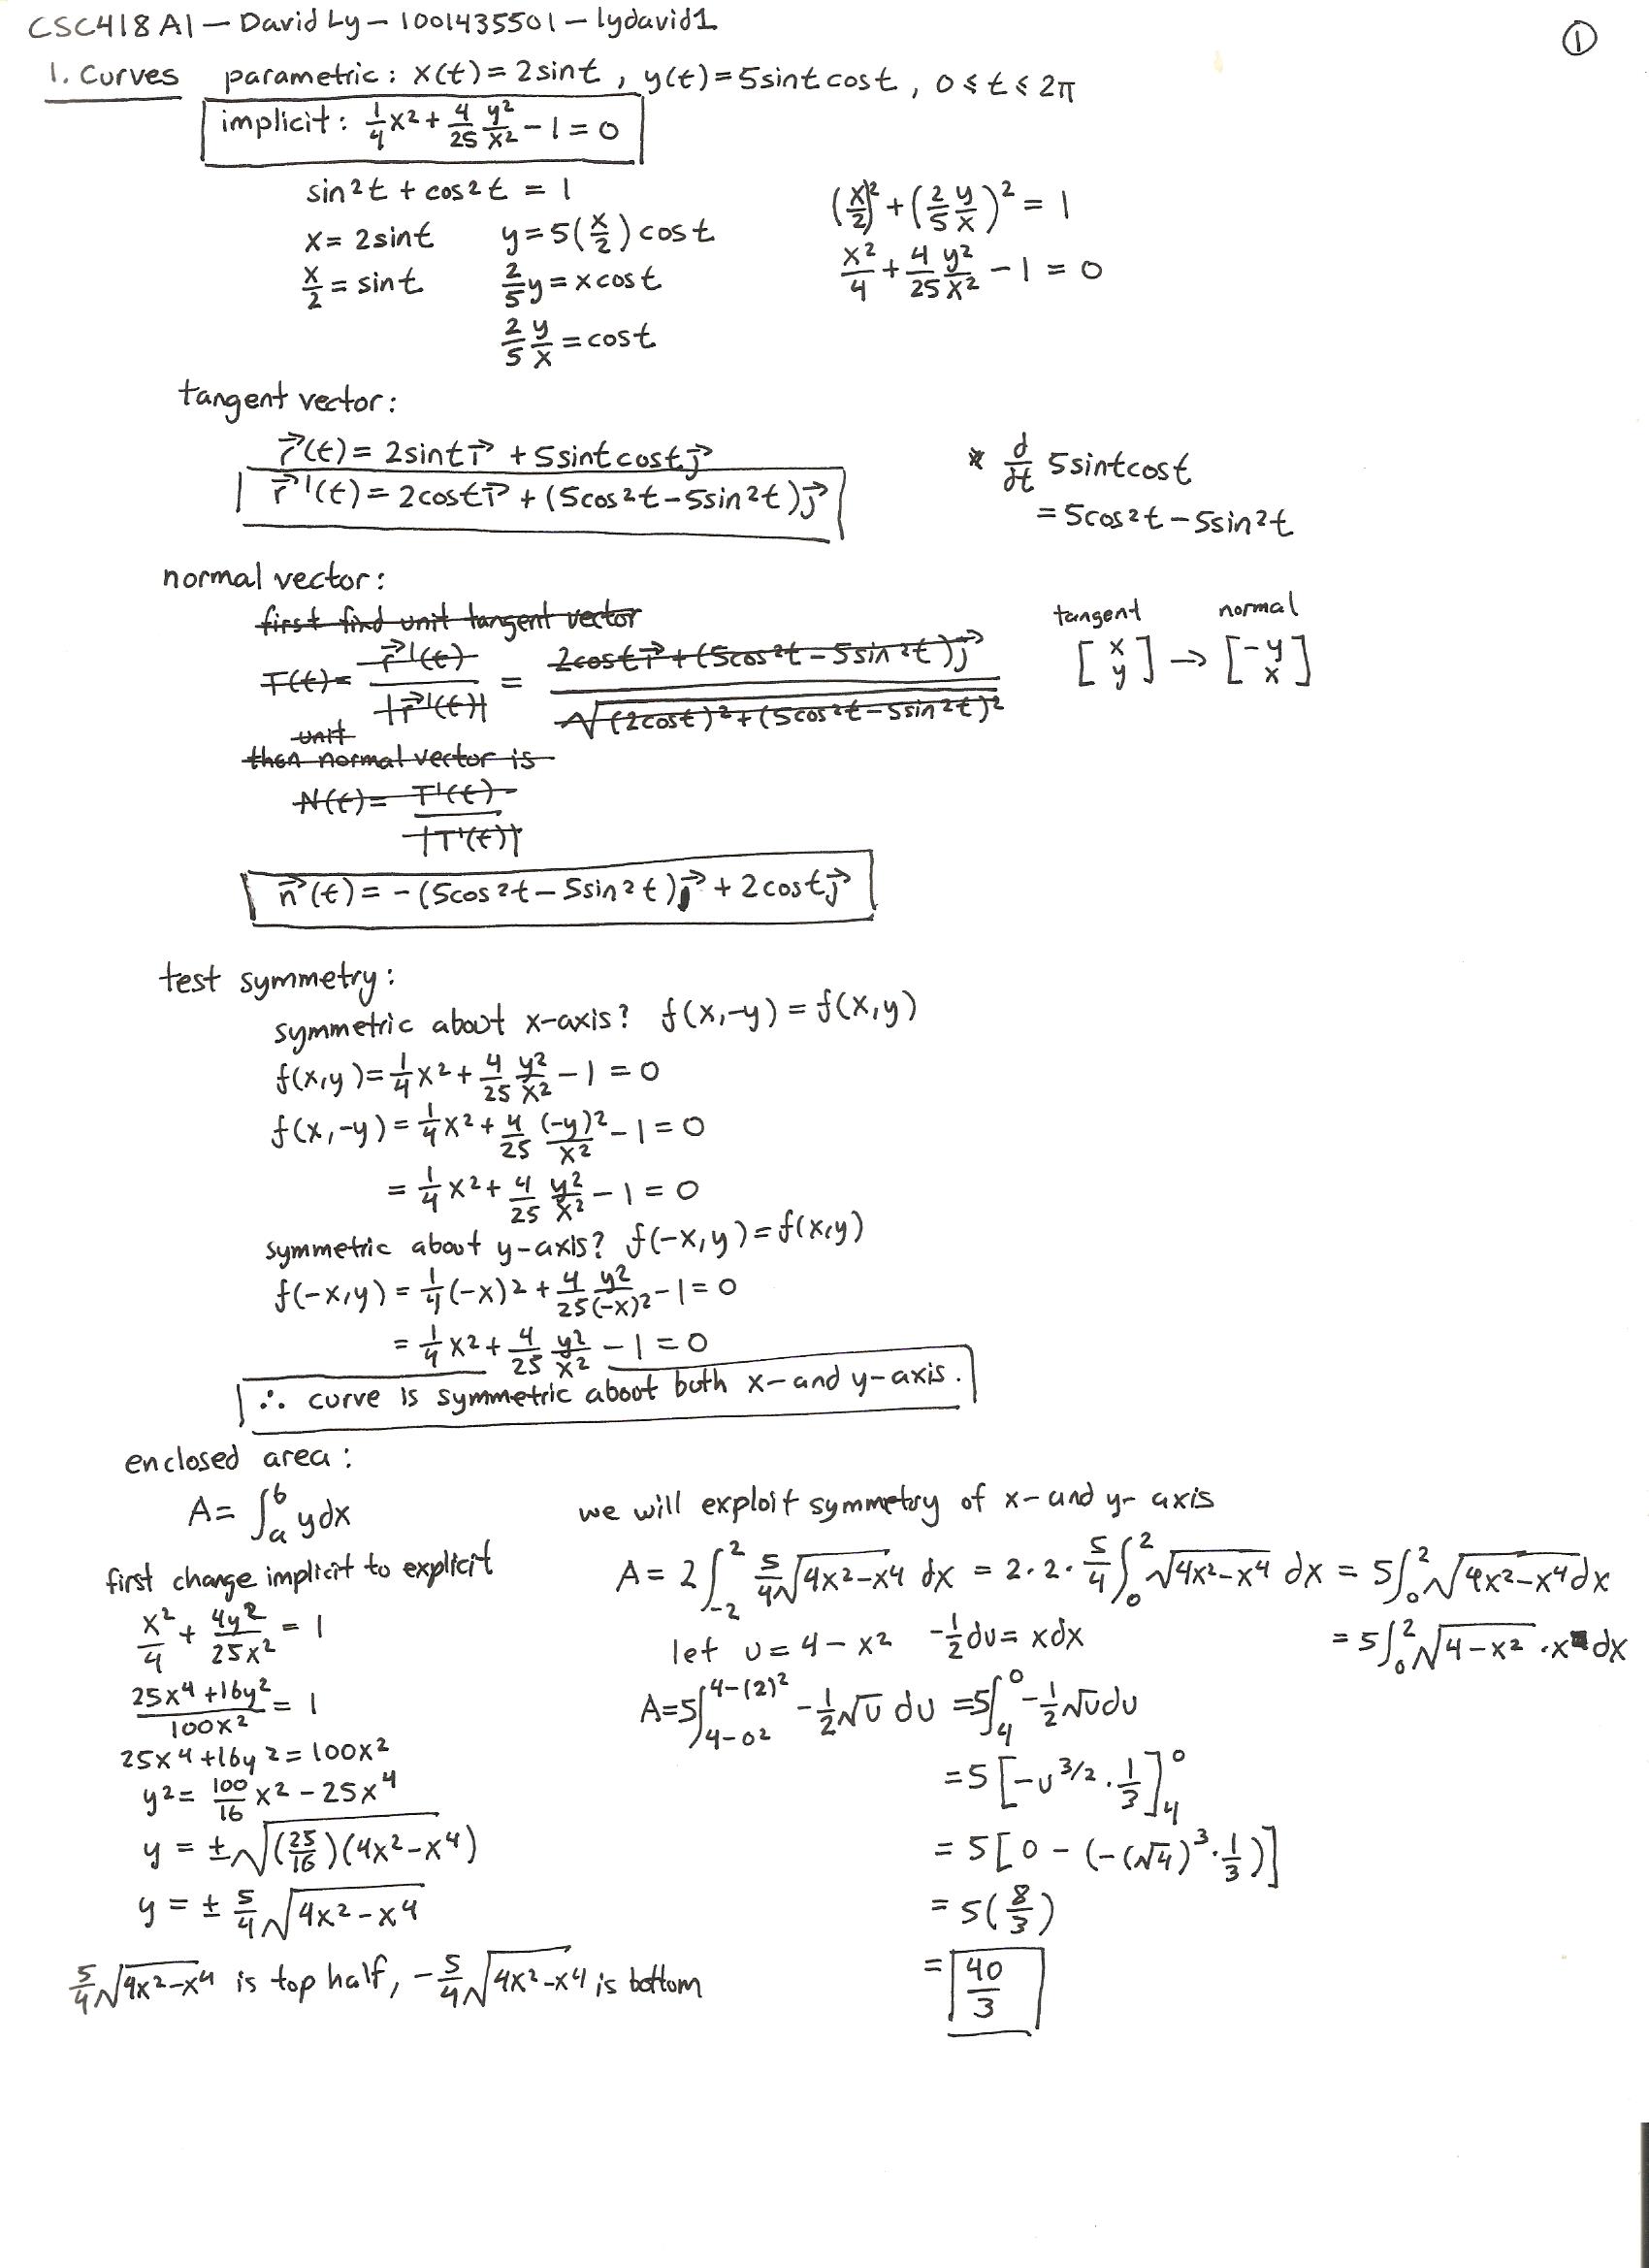 CSC418 A1 — David Ly — 1001435501 — lydavid1
①
1. Curves parametric: x(t) = 2sint, y(t) = 5sint cost, 0 ≤ t ≤ 2π
implicit: 1/4 x² + 4/25 y²/x² - 1 = 0
sin²t + cos²t = 1
x = 2sint y = 5(x/2) cost
x/2 = sint 2/5 y = x cost
2/5 y/x = cost
(x/2)² + (2/5 y/x)² = 1
x²/4 + 4/25 y²/x² - 1 = 0
tangent vector:
r⃗(t) = 2sint i⃗ + 5sintcost j⃗
r⃗'(t) = 2cost i⃗ + (5cos²t - 5sin²t) j⃗
* d/dt 5sintcost
= 5cos²t - 5sin²t
normal vector:
first find unit tangent vector
T(t) = r⃗'(t)/|r⃗'(t)| = (2cost i⃗ + (5cos²t - 5sin²t) j⃗)/√((2cost)² + (5cos²t - 5sin²t)²)
unit
then normal vector is
N(t) = T'(t)/|T'(t)|
tangent normal
[x y] → [-y x]
n⃗(t) = -(5cos²t - 5sin²t) i⃗ + 2cost j⃗
test symmetry:
symmetric about x-axis? f(x,-y) = f(x,y)
f(x,y) = 1/4 x² + 4/25 y²/x² - 1 = 0
f(x,-y) = 1/4 x² + 4/25 (-y)²/x² - 1 = 0
= 1/4 x² + 4/25 y²/x² - 1 = 0
symmetric about y-axis? f(-x,y) = f(x,y)
f(-x,y) = 1/4 (-x)² + 4/25 y²/(-x)² - 1 = 0
= 1/4 x² + 4/25 y²/x² - 1 = 0
∴ curve is symmetric about both x- and y-axis.
enclosed area:
A = ∫ₐᵇ ydx
first change implicit to explicit
x²/4 + 4y²/25x² = 1
(25x⁴ + 16y²)/100x² = 1
25x⁴ + 16y² = 100x²
y² = 100/16 x² - 25x⁴
y = ±√((25/16)(4x² - x⁴))
y = ± 5/4 √(4x² - x⁴)
5/4 √(4x² - x⁴) is top half, -5/4 √(4x² - x⁴) is bottom
we will exploit symmetry of x- and y- axis
A = 2∫₋₂² 5/4 √(4x² - x⁴) dx = 2·2·5/4 ∫₀² √(4x² - x⁴) dx = 5∫₀² √(4x² - x⁴) dx
= 5∫₀² √(4 - x²) · x dx
let u = 4 - x² -1/2 du = xdx
A = 5∫_{4-0²}^{4-(2)²} -1/2 √u du = 5∫₄⁰ -1/2 √u du
= 5[-u^{3/2} · 1/3]₄⁰
= 5[0 - (-(√4)³ · 1/3)]
= 5(8/3)
= 40/3